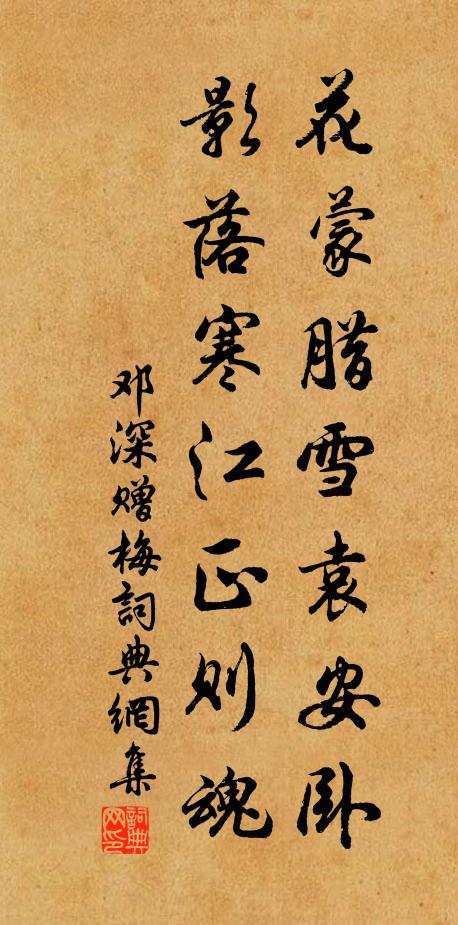 花蒙腊雪袁安卧
影落寒江正则魂
邓深赠梅詞典網集
詞典網印